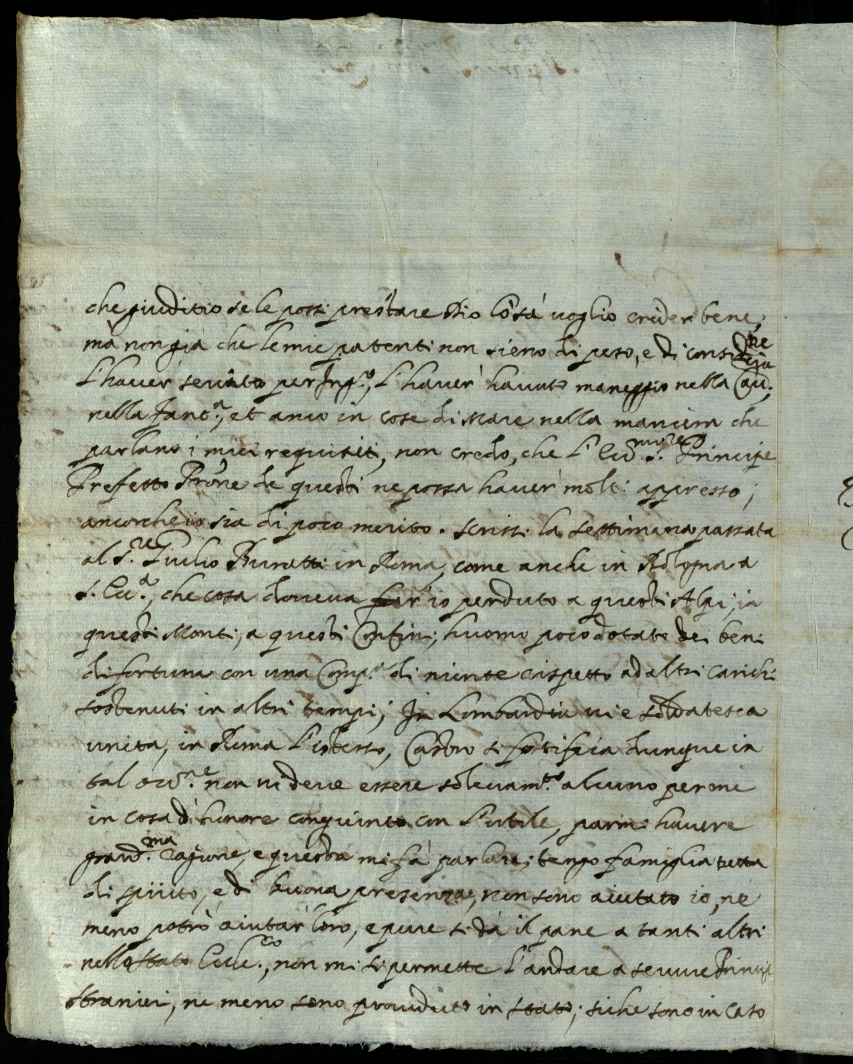 che giuditio se le possi prestare Dio lo sà voglio creder bene,
mà non gia che le mie patenti non sieno di peso, e di consid.ne
L'haver' servito per Ing.o, L'haver' havuto maneggio nella Cav.ria
nella Fant.a, et anco in cose di Mare nella maniera che
parlano i miei requisiti, non credo, che L'Ecc.mo S.re Principe
Prefetto Prone de questi ne possa haver' molti appresso,
ancorche io sia di poco merito. scrissi la settimana passata
al S.re Giulio Buratti in Roma, come anche in Bologna a
S. Ecc.a, che cosa doveva far' io perduto a questi Alpi, in
questi Monti, a questi Confini, huomo poco dotato dei beni
di fortuna con una Comp.a di niente rispetto ad altri carichi
sostenuti in altri tempi; In Lombardia vi è soldatesca
unita, in Roma L'istesso, Castro si fortifica dunque in
tal occ.ne non vi deve essere sollevam.to alcuno per me
in cosa d'honore congiunto con L'utile, parmi havere
grand.ma ragione, e questa mi fà parlare; tengo famiglia tutta
di spirito, e di buona presenza, non sono aiutato io, nè
meno potrò aiutar' loro, e pure si dà il pane a tanti altri
nello stato Eccle.co, non mi si permette L'andare a servire Principi
stranieri, ne meno sono proveduto in stato; siche sono in caso